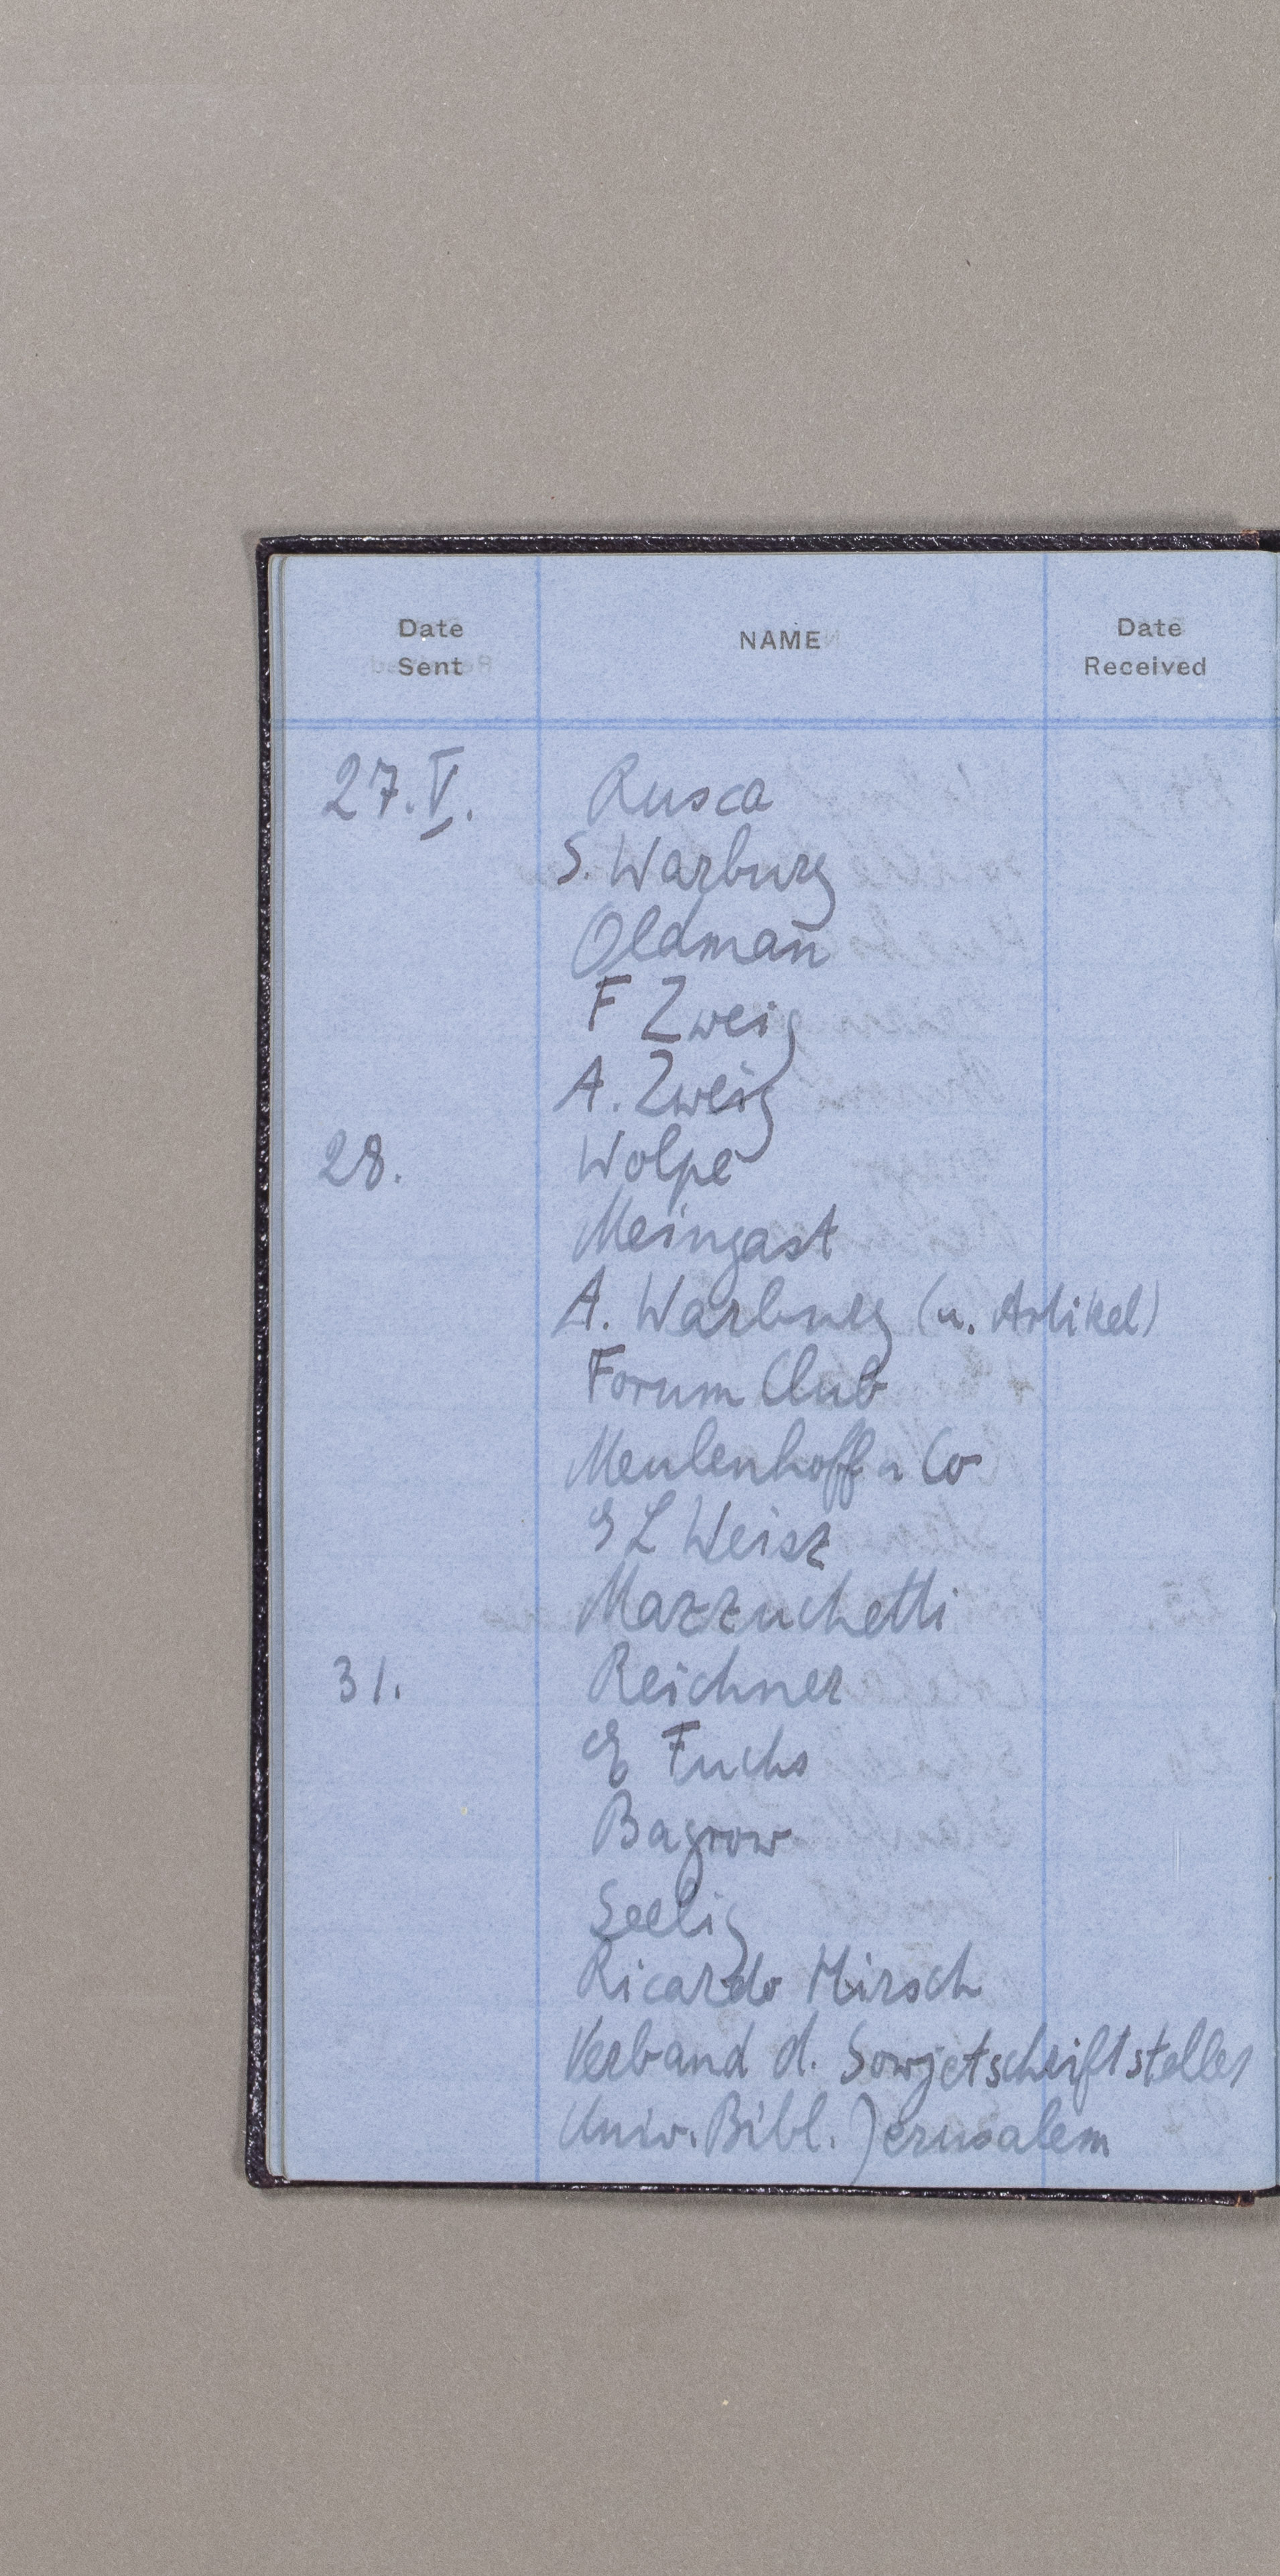 Date Sent NAME Date Received
27.V. Rusca
S. Warburg
Oldman
F Zweig
A. Zweig
28. Wolpe
Meingast
A. Warburg (u. Artikel)
Forum Club
Meulenhoff u Co
E L Weisz
Mazzuchetti
31. Reichner
E Fuchs
Bagrow
Seelig
Ricardo Hirsch
Verband d. Sowjetschriftsteller
Univ. Bibl. Jerusalem